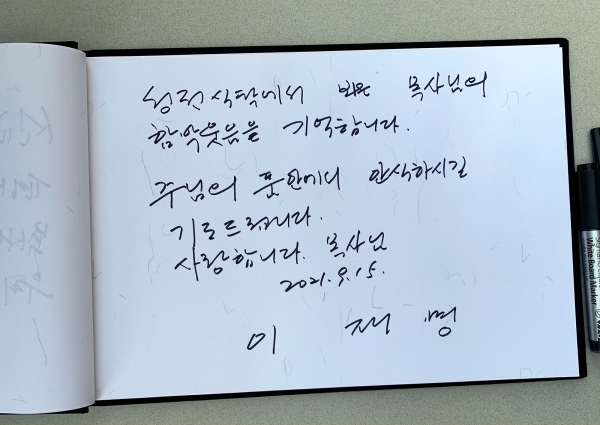 성전 식탁에서 뵈온 목사님의
함박웃음을 기억합니다.
주님의 품안에서 안식하시길
기도드립니다.
사랑합니다. 목사님
2021. 9. 15.
이 재 명
White Board Marker